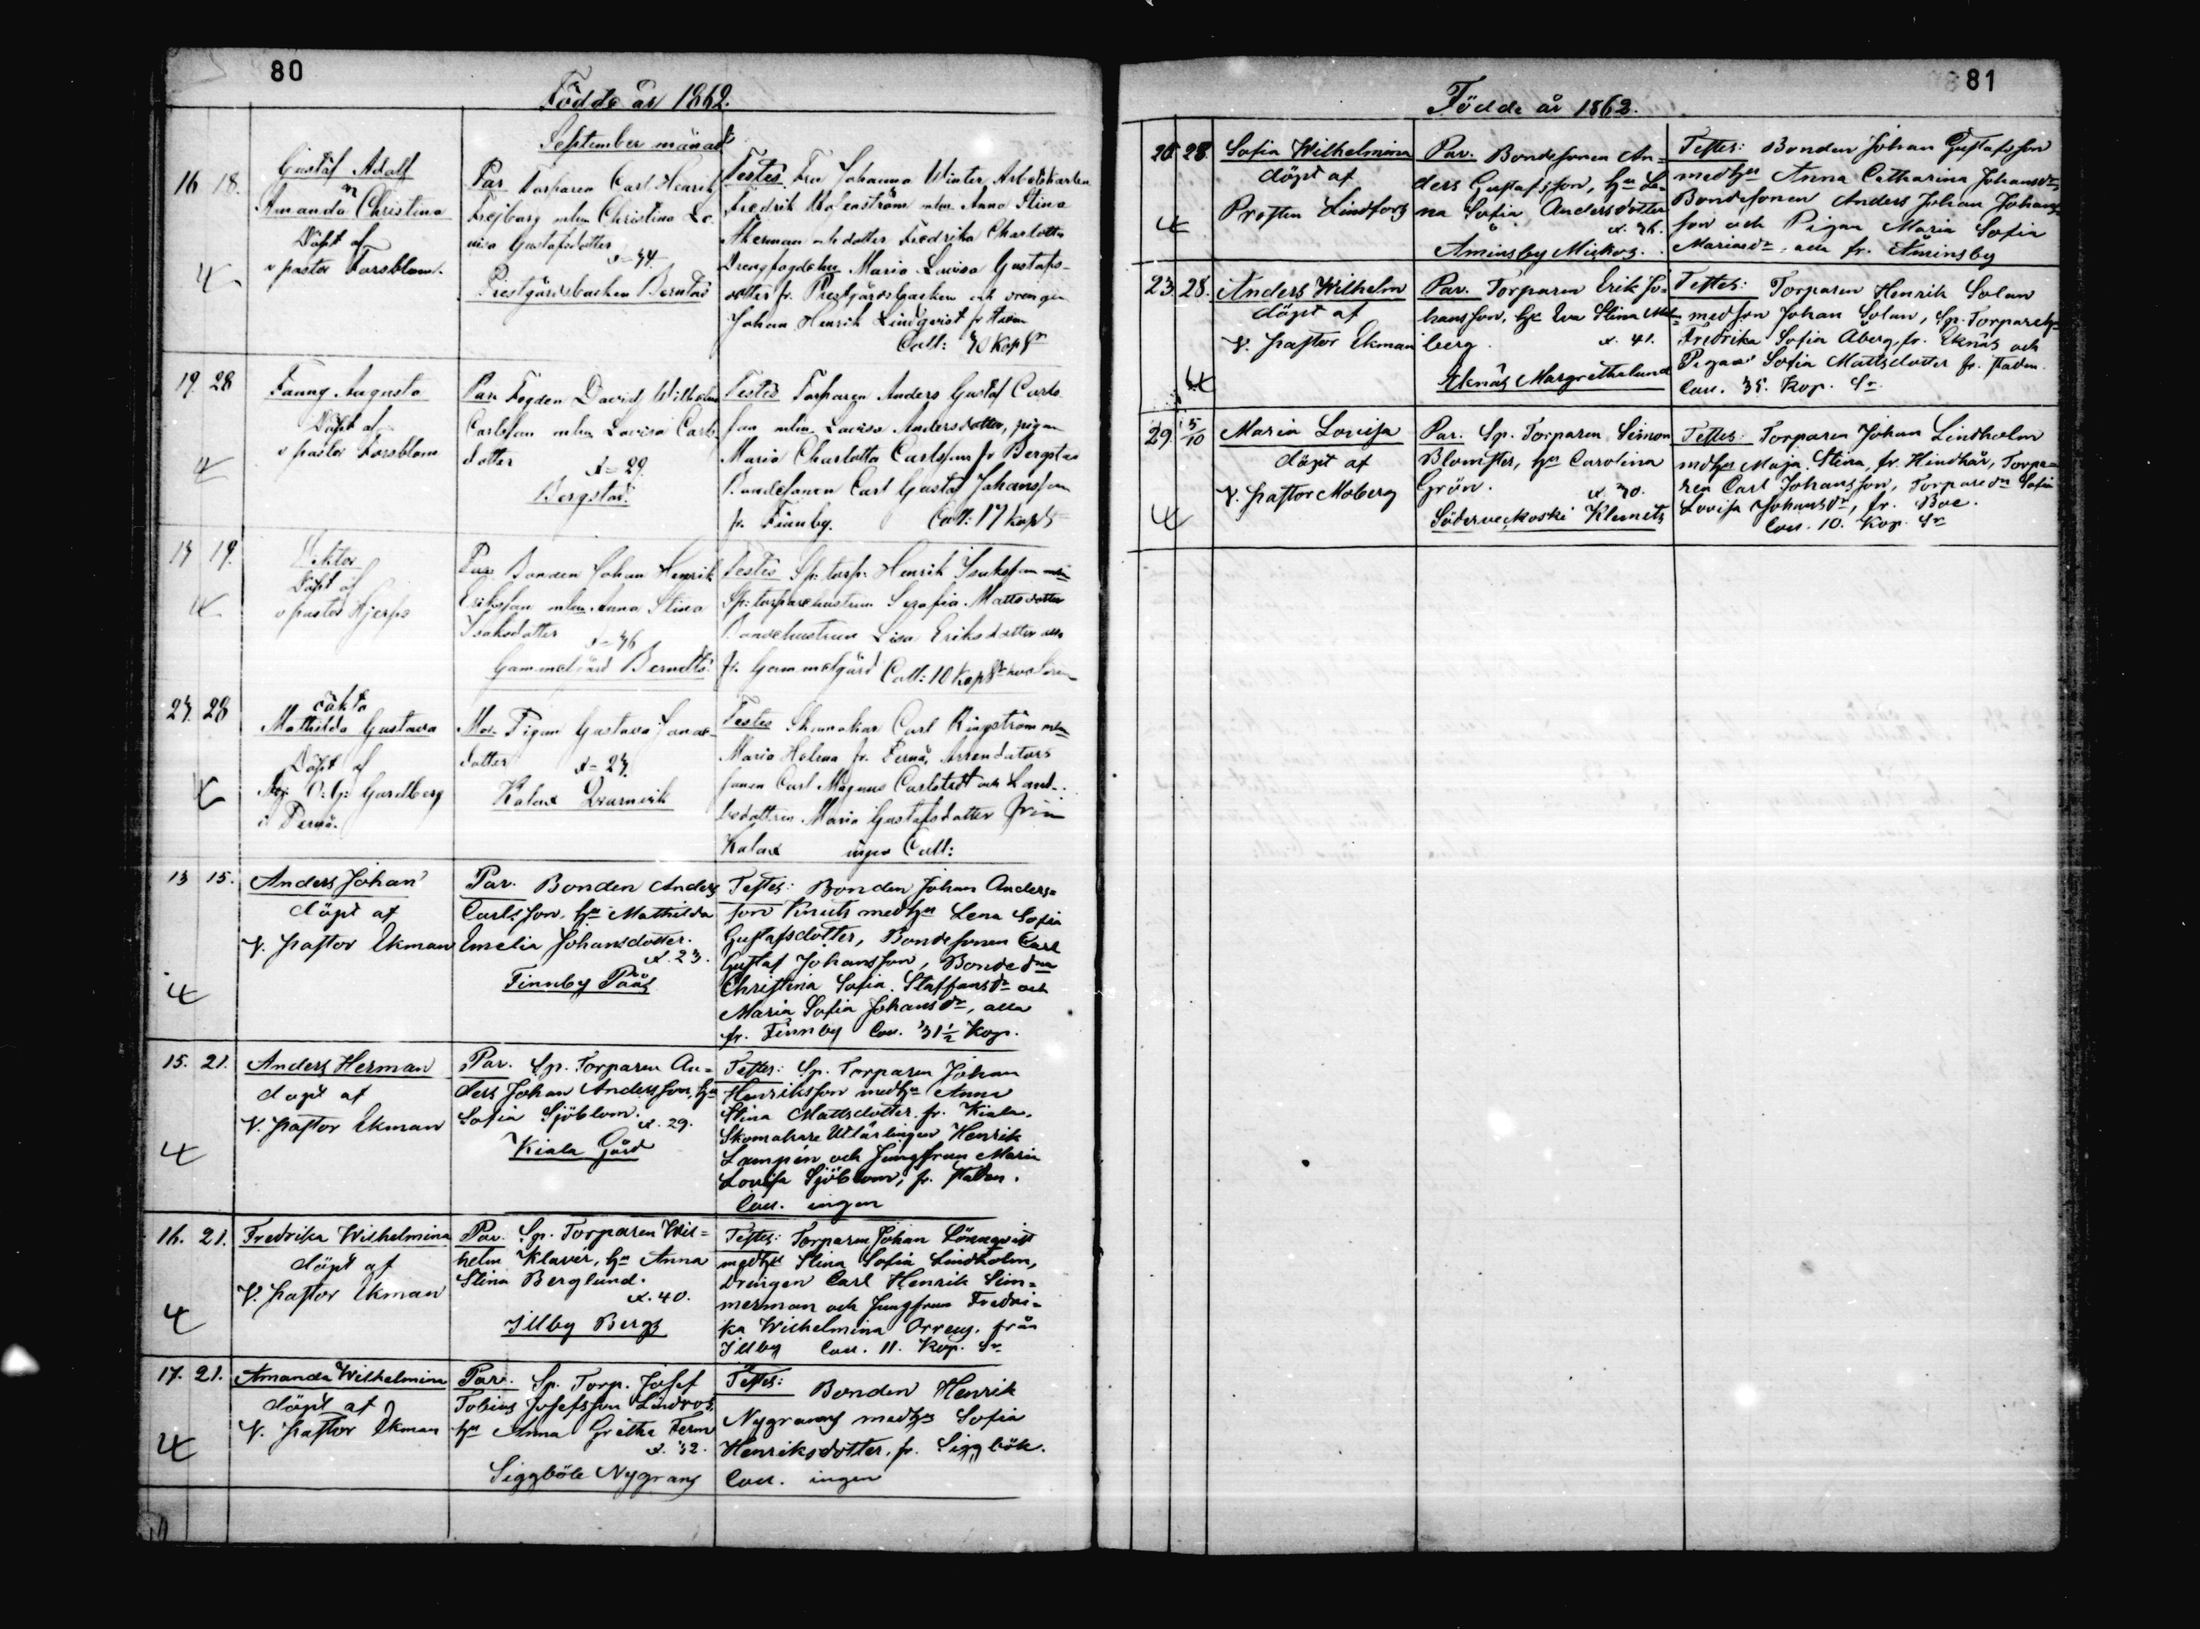 80
Födde år 1862.
September månad
16 18.
Gustaf Adolf
Amanda Christina
Döpt af
v pastor Forsblom.
Par Torparen Carl Henrik
Frejborg mhu Christina Lo
visa Gustafsdotter
Prestgårdsbacken Borntas
Testes Fru Johanna Winter, Arbetskarlen
Fredrik Malmström mhu Anna Stina
Åkerman och dotter Fredrika Charlotta
Drengfogdehu Maria Lovisa Gustafs-
dotter fr. Prestgårdsbacken och drengen
Johan Henrik Lindqvist fr staden
Coll: 70 Kop Sr
19. 28
Fanny Augusta
Döpt af
v pastor Forsblom
Par Fogden David Wilhelm
Carlsson mhu Lovisa Carls
dotter
æ= 29
Bergstad.
Testes Torparen Anders Gustaf Carls
son mhu Lovisa Andersdotter, pigan
Maria Charlotta Carlsson fr Bergstad
Bondesonen Carl Gustaf Johansson
fr. Finnby. Coll: 17 kop S
19.
Viktor
Döpt af
v pastor Hjerpe
Par Bonden Johan Henrik
Eriksson mhu Anna Stina
Isaksdotter
æ= 36
Gammelgård Berndts
Testes Sp: torp: Henrik Isaksson mhu
Sp: torparehustrun Serafia Mattsdotter
Bondehustrun Lisa Eriksdotter alla
fr. Gammelgård Coll: 10 Kop Sr
27. 28
oäkta
Mathilda Gustava
Döpt af
i Pernå.
Mod. Pigan Gustava Jonas-
dotter
æ= 27.
Kalax Qvarnvik
Testes Skomakar Carl Ringström mhu
Maria Helena fr. Pernå, Arrendators
sonen Carl Magnus Carlstedt och Land-
bodottren Maria Gustafsdotter från
Kalax ingen Coll:
13 15.
Anders Johan
döpt af
V. pastor Ekman
Par. Bonden Anders
Carlsson, hu Mathilda
Emelia Johansdotter.
æ. 23.
Finnby Påås
Testes: Bonden Johan Anders=
son Knuts med hu Lena Sofia
Gustafsdotter, Bondesonen Carl
Gustaf Johansson, Bonded:na
Christina Sofia Staffansdr och
Maria Sofia Johansdr, alla
fr. Finnby Coll. 31½ Kop.
15. 21.
Anders Herman
döpt af
V. pastor Ekman
Par. Sp. Torparen An=
ders Johan Andersson, hu
Sofia Sjöblom.
æ. 29.
Kiala Gård
Testes: Sp. Torparen Johan
Henriksson med hu Anna
Stina Mattsdotter fr. Kiala,
Skomakare Utlärlingen Henrik
Lampén och Jungfrun Maria
Lovisa Sjöblom, fr. staden.
Coll. ingen
16. 21.
Fredrika Wilhelmina
döpt af
V. pastor Ekman
Par. Sp. Torparen Wil=
helm Klavér, hu Anna
Stina Berglund.
æ. 40.
Illby Bergs
Testes: Torparen Johan Lönnqvist
med hu Stina Sofia Lindholm,
Drengen Carl Henrik Sim=
merman och Jungfrun Fredri=
ka Wilhelmina Orreus, från
Illby Coll. 11. Kop. Sr
17. 21.
Amanda Wilhelmina
döpt af
V. pastor Ekman
Par. Sp. Torp. Josef
Tobias Josefsson Lindros,
hu Anna Gretha Ferm
æ. 32.
Siggböle Nygrans
Testes: Bonden Henrik
Nygrans med hu Sofia
Henriksdotter, fr. Siggböle.
Coll. ingen
81
Födde år 1862.
28. 28
Sofia Wilhelmina
döpt af
Prosten Lindfors
Par. Bondesonen An=
ders Gustafsson, hu Le=
na Sofia Andersdotter
æ. 36.
Åminsby Mickos.
Testes: Bonden Johan Gustafsson
med hu Anna Catharina Johansdr,
Bondesonen Anders Johan Johans
son och Pigan Maria Sofia
alla fr. Åminsby
23. 28.
Anders Wilhelm
döpt af
V. pastor Ekman
Par. Torparen Erik Jo=
hansson, hu Eva Stina Malm=
berg.
æ. 41.
Eknäs Margrethelund
Testes: Torparen Henrik Solan
med son Johan Solan, Sp. Torpareh:
Fredrika Sofia Åberg, fr. Eknäs och
Pigan Sofia Mattsdotter fr. staden.
Coll. 35. Kop. Sr
29. 5/10
Maria Lovisa
döpt af
V. pastor Moberg
Par. Sp. Torparen Simon
Blomster, hu Carolina
Grön.
æ. 30.
Söderveckoski Klemets
Testes: Torparen Johan Lindholm
med hu Maja Stina, fr. Hindhår, Torpa=
ren Carl Johansson, Torpared:n Sofia
Lovisa Johansdr, fr. Boe.
Coll. 10. Kop. Sr